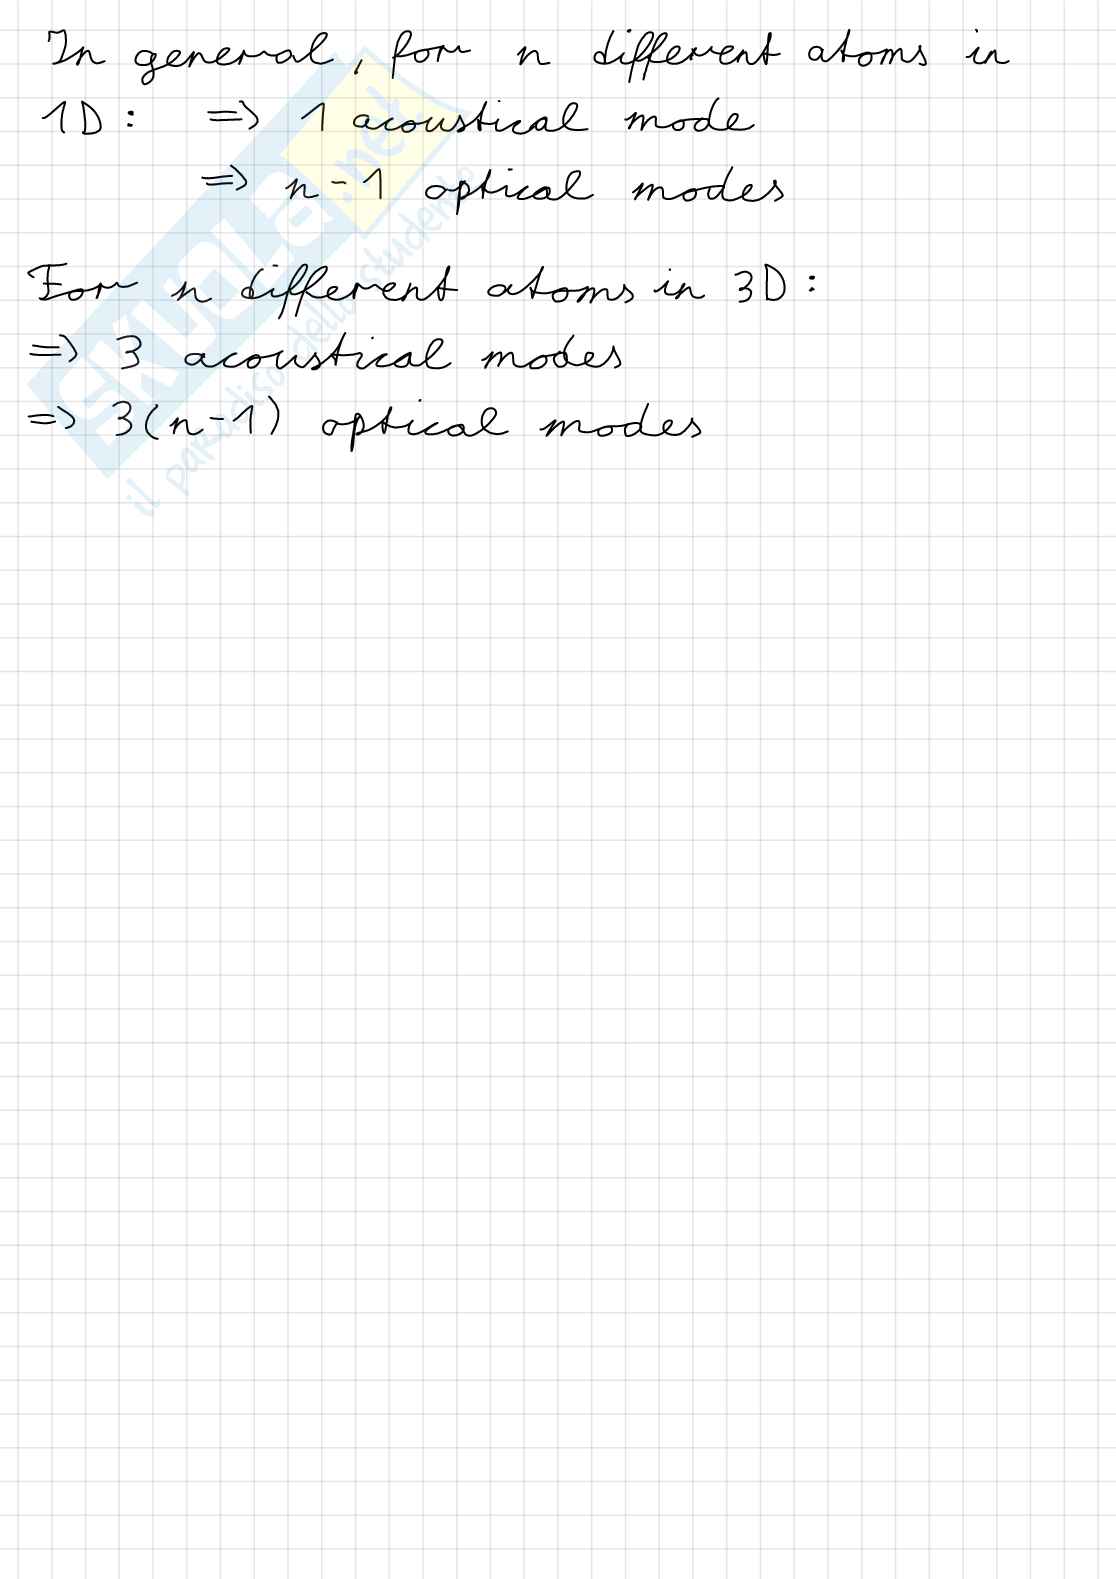 In general, for n different atoms in
1D: => 1 acoustical mode
=> n-1 optical modes
For n different atoms in 3D:
=> 3 acoustical modes
=> 3(n-1) optical modes
SKUOLA.net
il paradiso dello studente